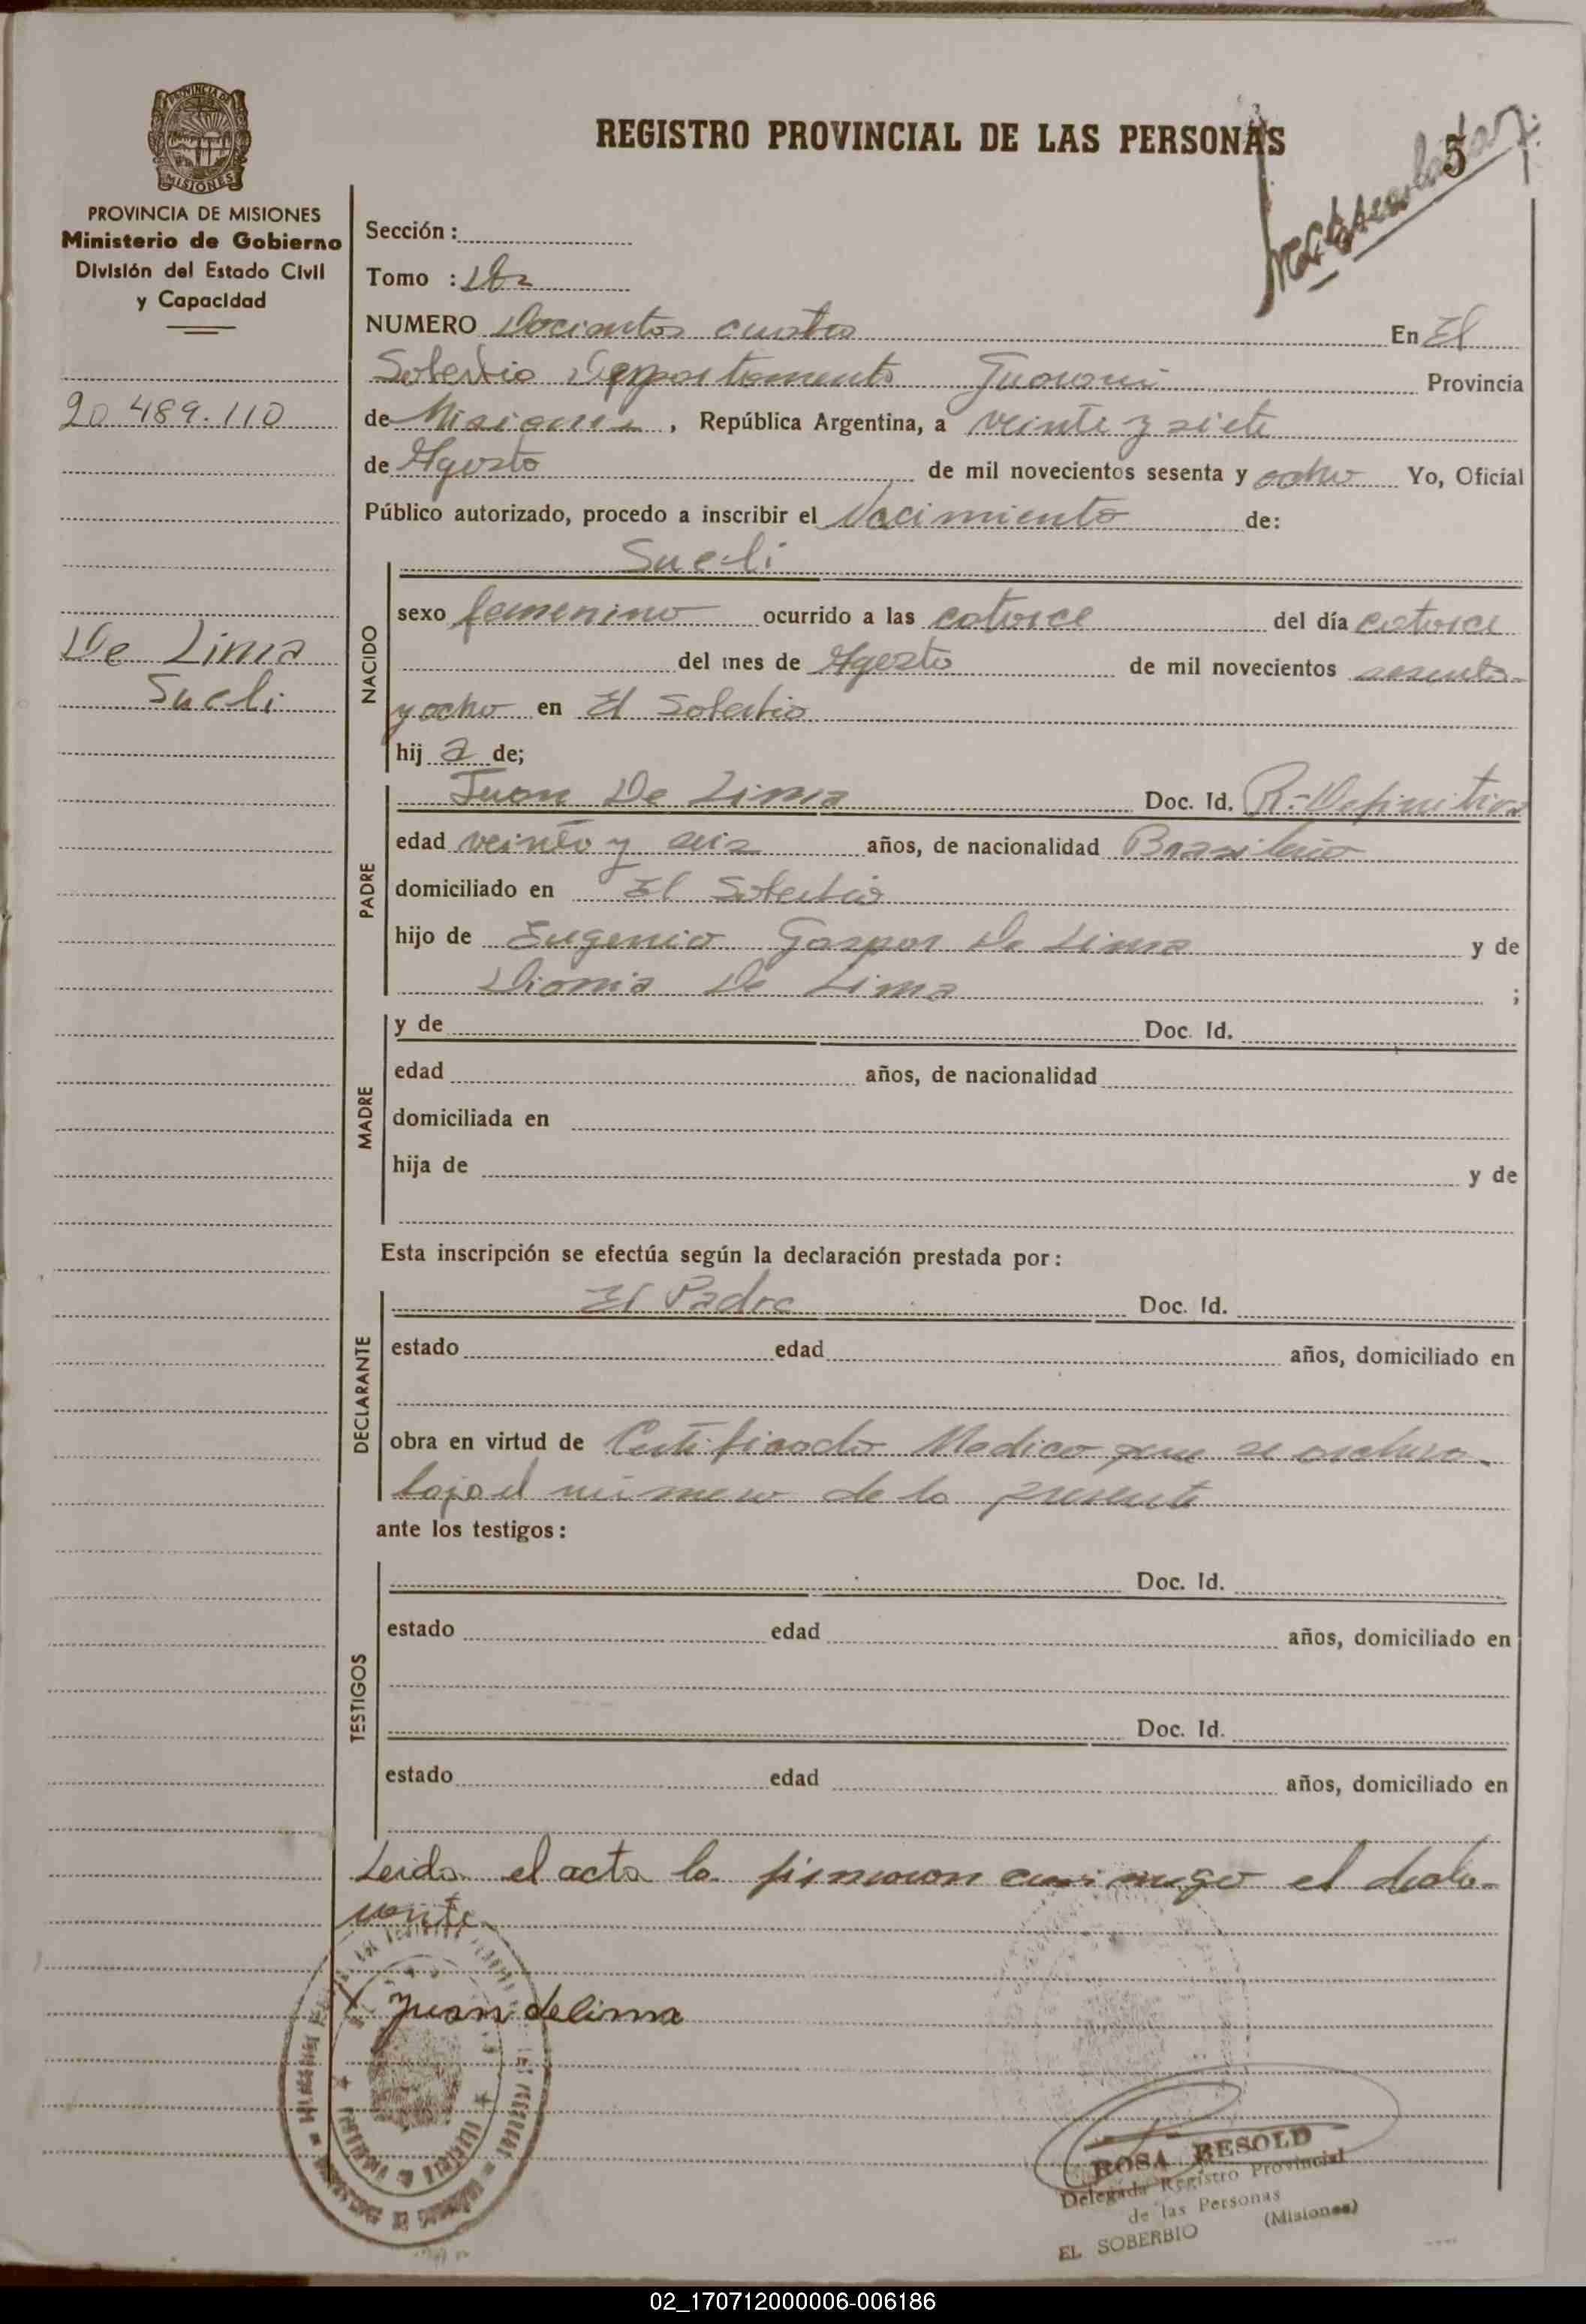 REGISTRO PROVINCIAL DE LAS PERSONAS
5
PROVINCIA DE MISIONES
Ministerio de Gobierno
División del Estado Civil
y Capacidad
20.489.110
De Lima
Sueli
Sección:
Tomo :
NUMERO Docientos cuatro En El
Soberbio Departamento Guarani Provincia
de Misiones, República Argentina, a veinte y siete
de Agosto de mil novecientos sesenta y ocho Yo, Oficial
Público autorizado, procedo a inscribir el Nacimiento de:
NACIDO
Sueli
sexo femenino ocurrido a las catorce del día catorce
del mes de Agosto de mil novecientos sesenta
y ocho en El Soberbio
hija de;
PADRE
Juan De Lima Doc. Id. R. Definitiva
edad veinte y seis años, de nacionalidad Brasileño
domiciliado en El Soberbio
hijo de Eugenio Gaspar De Lima y de
De Lima ;
MADRE
y de Doc. Id.
edad años, de nacionalidad
domiciliada en
hija de y de
Esta inscripción se efectúa según la declaración prestada por:
DECLARANTE
El Padre Doc. Id.
estado edad años, domiciliado en
obra en virtud de Certificado Medico que se archiva
bajo el numero de la presente
ante los testigos:
TESTIGOS
Doc. Id.
estado edad años, domiciliado en
Doc. Id.
estado edad años, domiciliado en
Leida el acta la firmaron conmigo el decla-
rante
Juan de lima
ROSA RESOLD
Delegada Registro Provincial
de las Personas
EL SOBERBIO (Misiones)
02_170712000006-006186